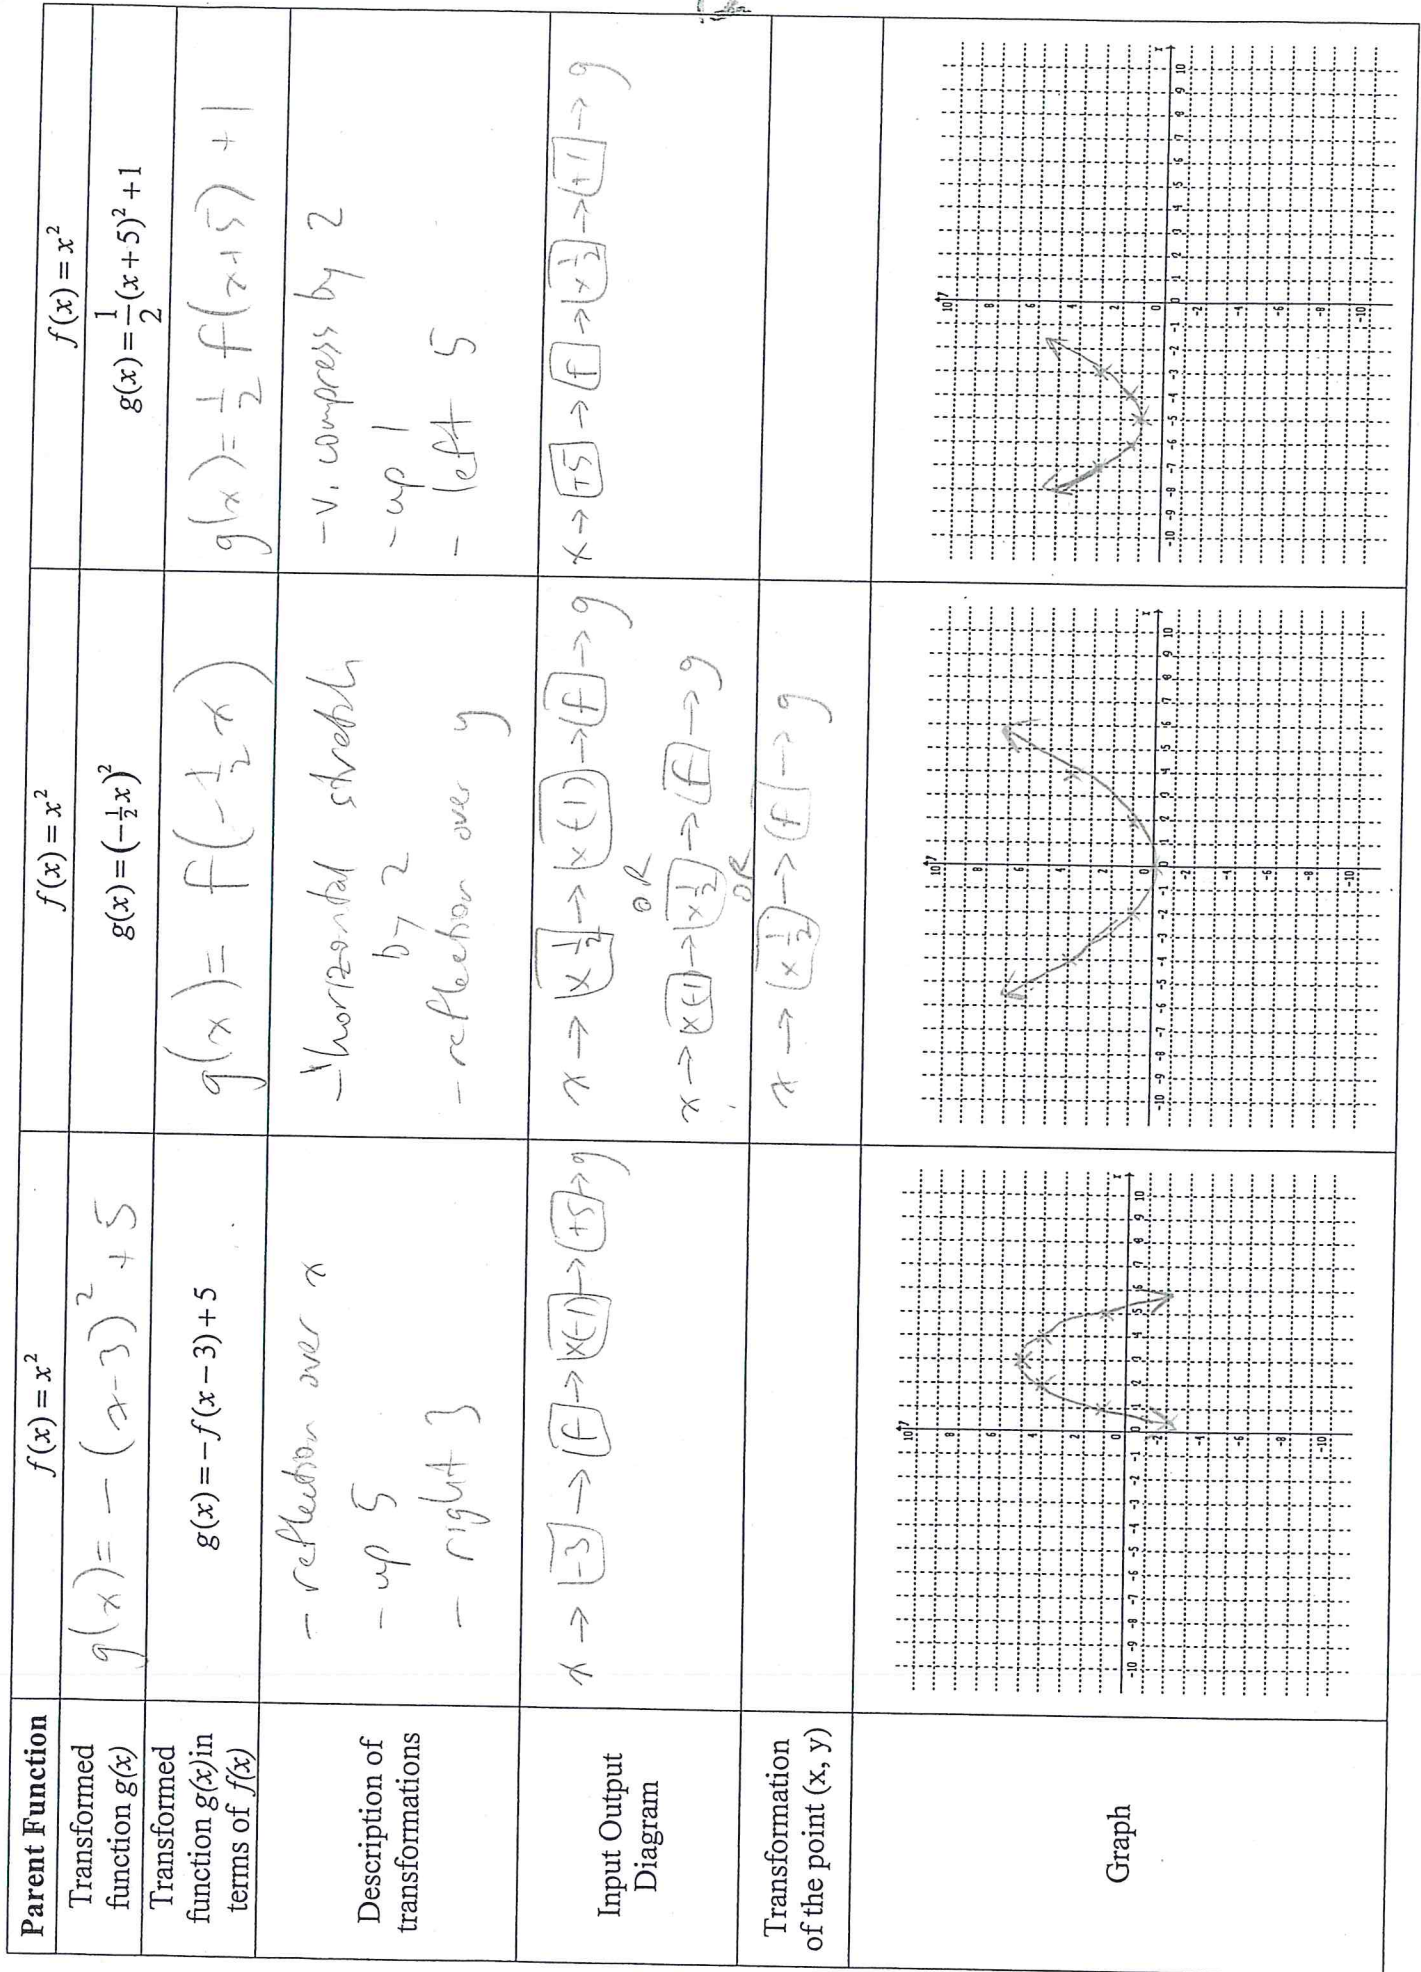 Parent Function
f(x) = x²
f(x) = x²
f(x) = x²
Transformed
function g(x)
g(x) = - (x-3)² + 5
g(x) = (-½x)²
g(x) = ½(x+5)² + 1
Transformed
function g(x) in
terms of f(x)
g(x) = -f(x-3) + 5
g(x) = f(-½x)
g(x) = ½ f(x+5) + 1
Description of
transformations
- reflection over x
- up 5
- right 3
- horizontal stretch
by 2
- reflection over y
- v. compress by 2
- up 1
- left 5
Input Output
Diagram
x → -3 → f → x(-1) → +5 → g
x → x ½ → x (-1) → f → g
OR
x → x(-1) → x ½ → f → g
OR
x → +5 → f → x ½ → +1 → g
Transformation
of the point (x, y)
x → x -½ → f → g
Graph
10 y
8
6
4
2
0
-2
-4
-6
-8
-10
-10 -9 -8 -7 -6 -5 -4 -3 -2 -1 0 1 2 3 4 5 6 7 8 9 10
x
10 y
8
6
4
2
0
-2
-4
-6
-8
-10
-10 -9 -8 -7 -6 -5 -4 -3 -2 -1 0 1 2 3 4 5 6 7 8 9 10
x
10 y
8
6
4
2
0
-2
-4
-6
-8
-10
-10 -9 -8 -7 -6 -5 -4 -3 -2 -1 0 1 2 3 4 5 6 7 8 9 10
x